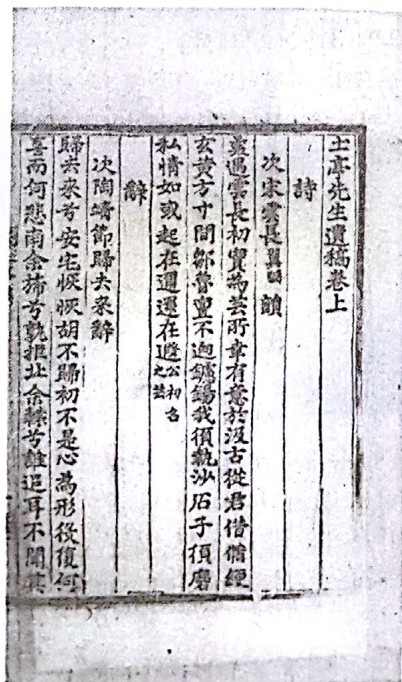 土亭先生遺稿卷上
詩
次宋雲長翼弼韻
幸遇雲長初實為芸所幸有意於汲古從君借脩綆
玄黃方寸間鄒魯豈不迥鑢鐋我須執沙石子須磨
私情如或起在邇還在遐公初名之芸
辭
次陶靖節歸去來辭
歸去來兮安宅恢恢胡不歸初不是心為形役復何
喜而何悲南余旆兮孰拒北余轅兮誰追耳不聞其